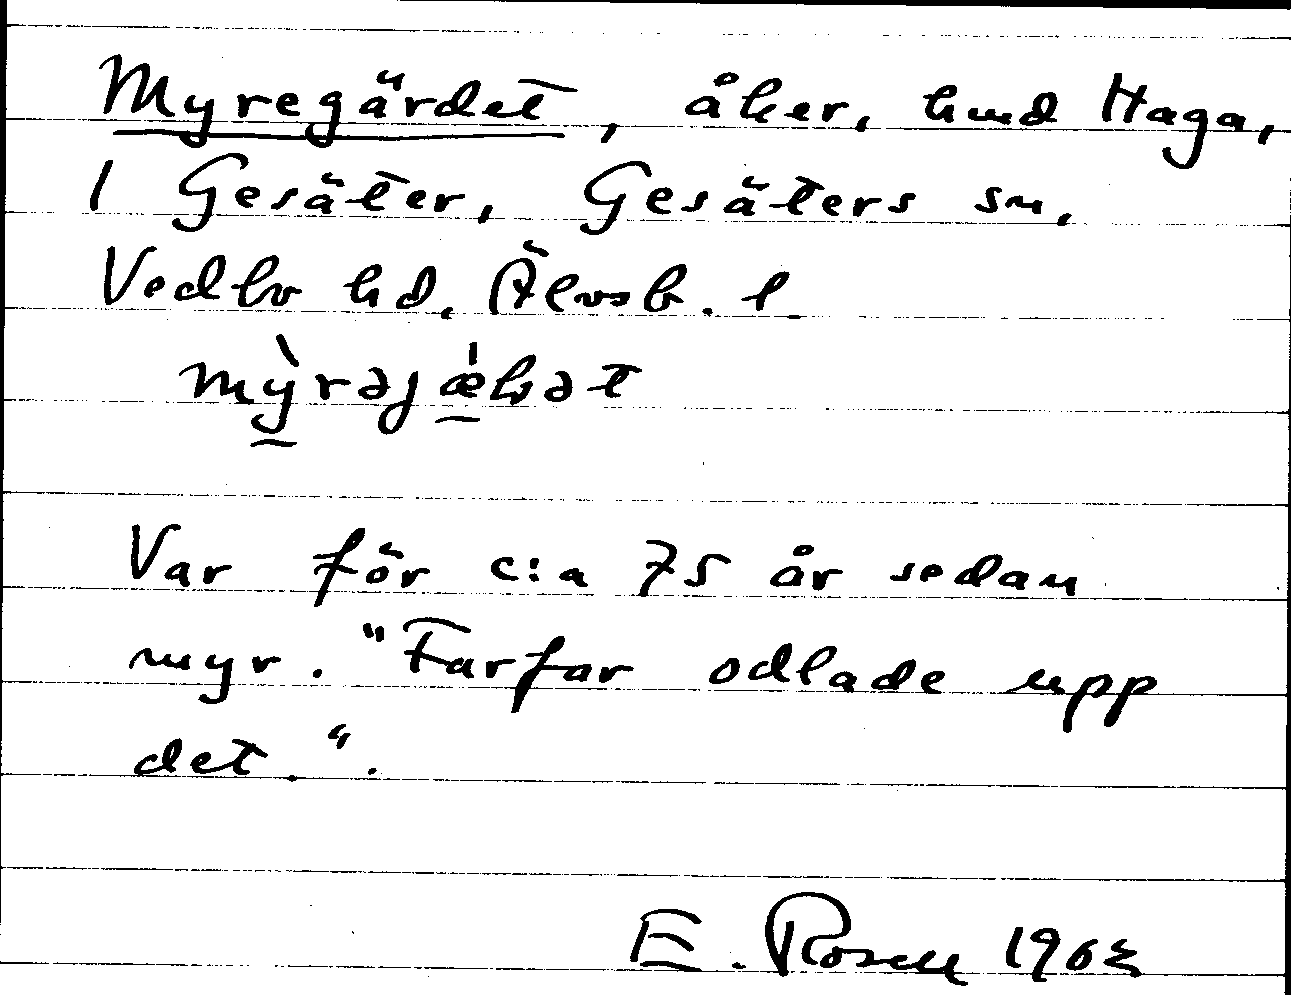 Myregärdet, åker, hmd Haga,
1 Gesäter, Gesäters sn,
Vedbo hd, Älvsb. l.
Var för c:a 75 år sedan
myr. "Farfar odlade upp
det.".
E. Rosell 1963